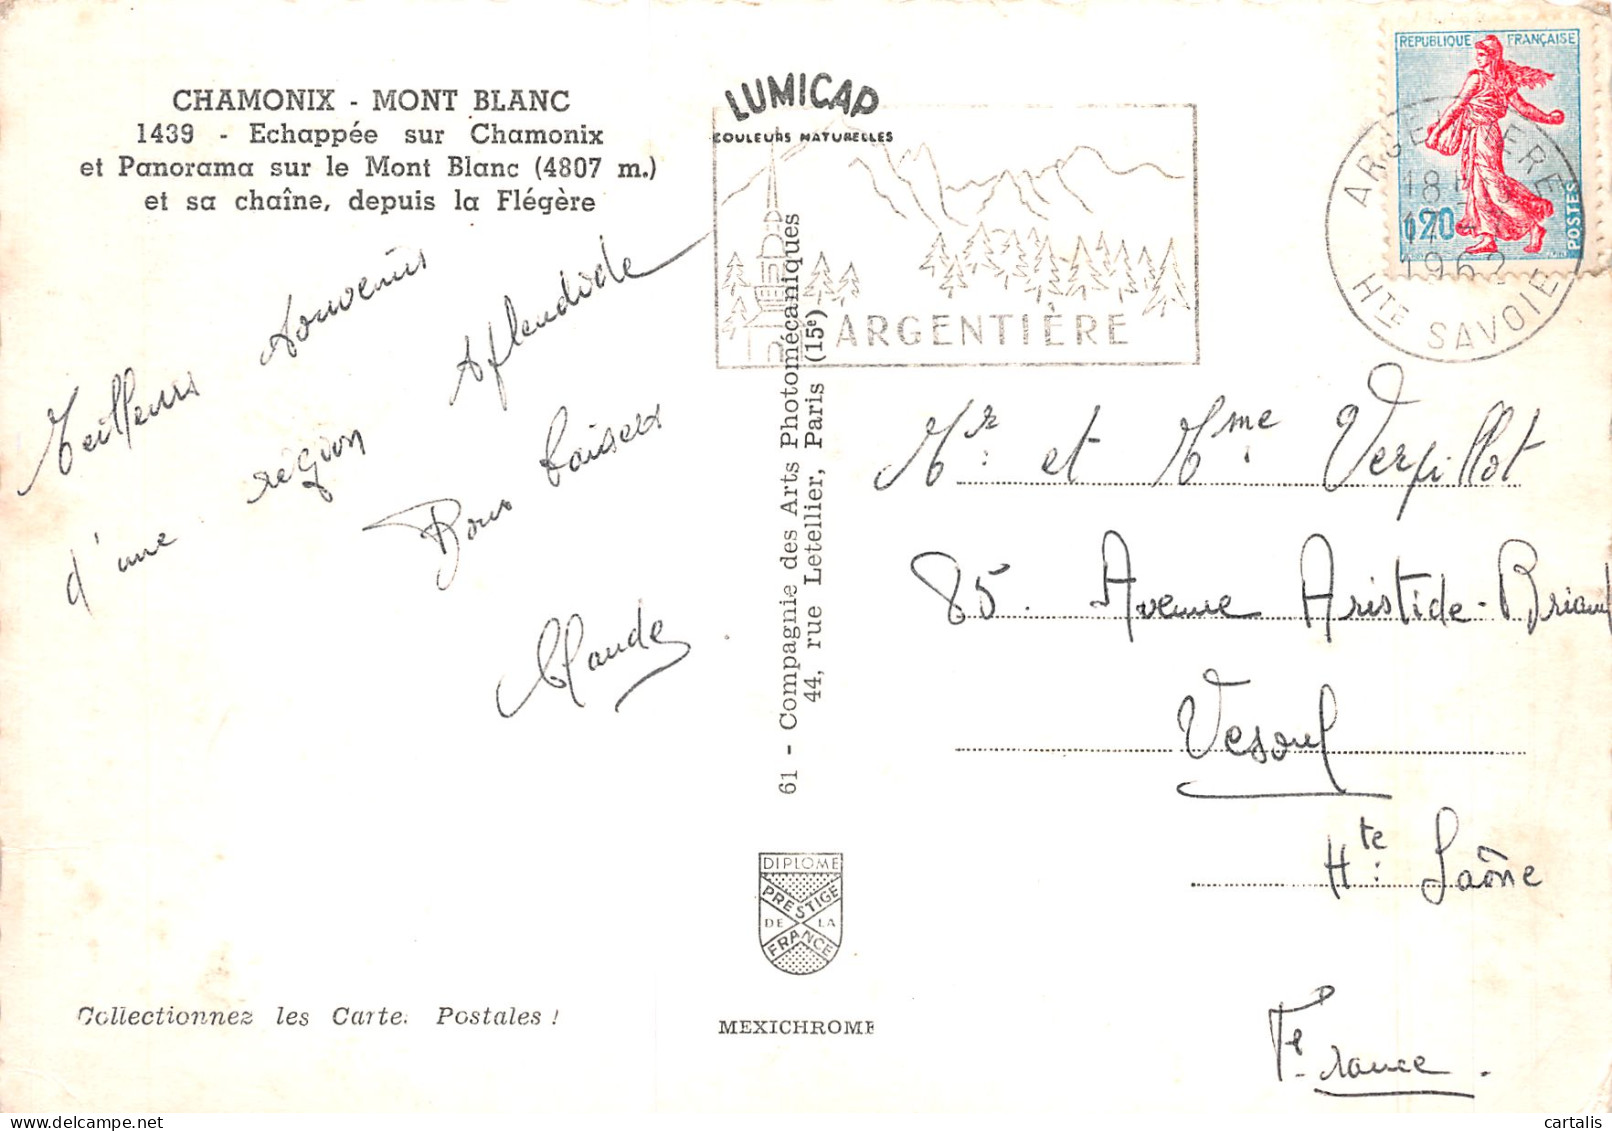 CHAMONIX - MONT BLANC
1439 - Echappée sur Chamonix
et Panorama sur le Mont Blanc (4807 m.)
et sa chaîne, depuis la Flégère
Meilleurs souvenirs
d'une région splendide
Bons baisers
Claude
Collectionnez les Carte. Postales !
LUMICAP
COULEURS NATURELLES
ARGENTIÈRE
61 - Compagnie des Arts Photomécaniques
44, rue Letellier, Paris (15e)
DIPLOME
PRESTIGE
DE LA
FRANCE
MEXICHROME
REPUBLIQUE FRANÇAISE
0,20
POSTES
ARGENTIERE
18H
17-
1962
HTE SAVOIE
Mr. et Mme. Verpillot
85. Avenue Aristide-Briand
Vesoul
Hte. Saône
France.
cartalis